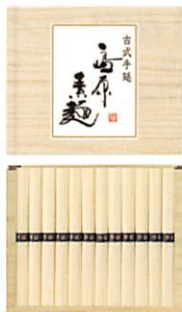 古式手延
島原
素麺